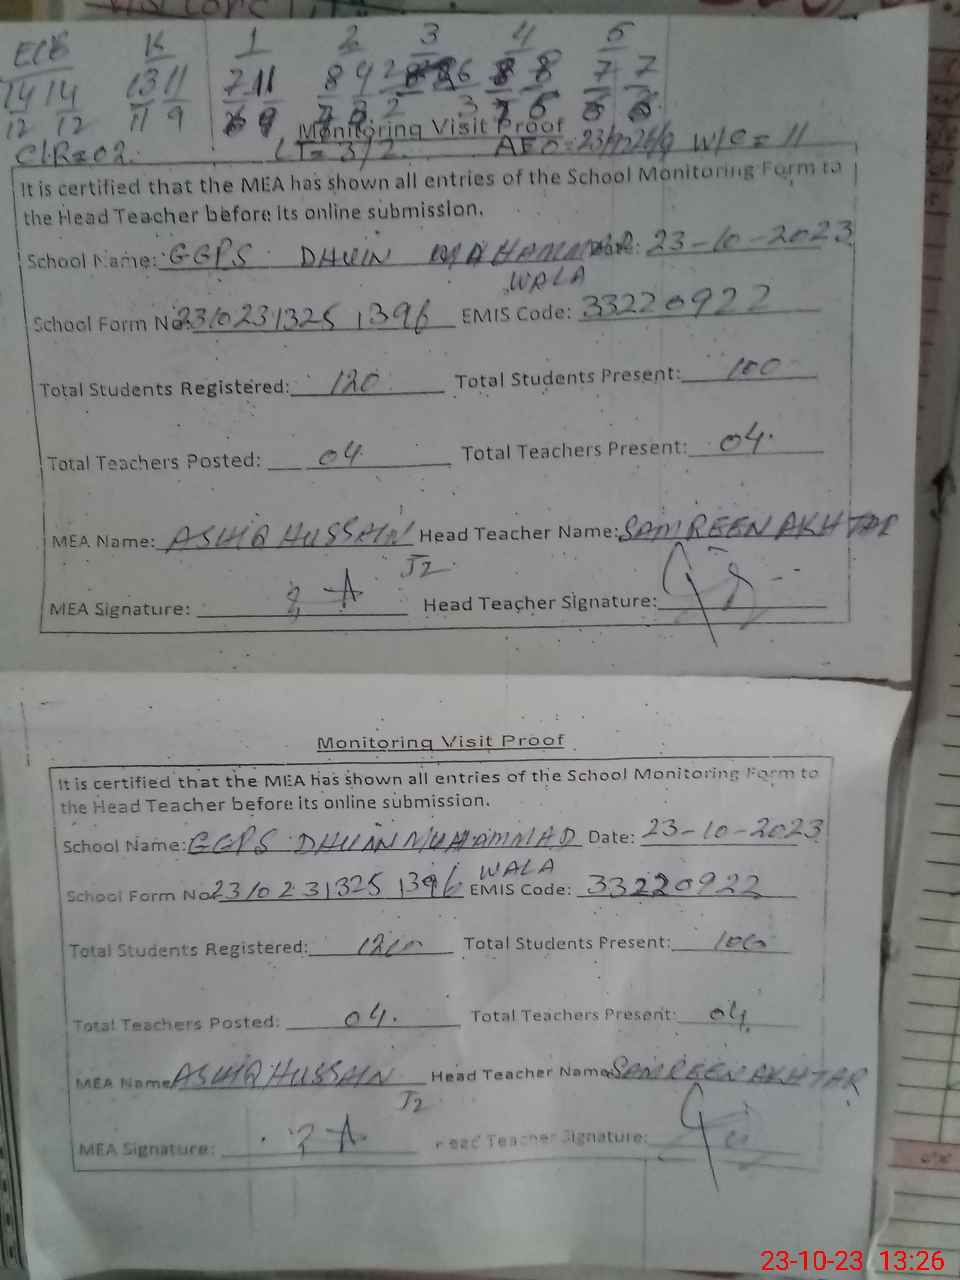 ECE K 1 2 3 4 5
14 14 13 11 7 11 8 4 8 7 7
12 12 11 9
Monitoring Visit Proof
CLR=02. LT= 3/2 AEO= W/C = 11
It is certified that the MEA has shown all entries of the School Monitoring Form to
the Head Teacher before its online submission.
School Name: GGPS DHUIN Date: 23-10-2023
WALA
School Form No: 2310231325 1396 EMIS Code: 33220922
Total Students Registered: 120 Total Students Present: 100
Total Teachers Posted: 04 Total Teachers Present: 04
MEA Name: ASHIQ HUSSAIN Head Teacher Name: SAMREEN AKHTAR
J2
MEA Signature: Head Teacher Signature:
Monitoring Visit Proof
It is certified that the MEA has shown all entries of the School Monitoring Form to
the Head Teacher before its online submission.
School Name: GGPS DHUAN MUHAMMAD Date: 23-10-2023
WALA
School Form No: 2310231325 1396 EMIS Code: 33220922
Total Students Registered: 120 Total Students Present: 100
Total Teachers Posted: 04. Total Teachers Present: 04
MEA Name ASHIQ HUSSAIN Head Teacher Name SAMREEN AKHTAR
J2
MEA Signature: Head Teacher Signature:
23-10-23 13:26